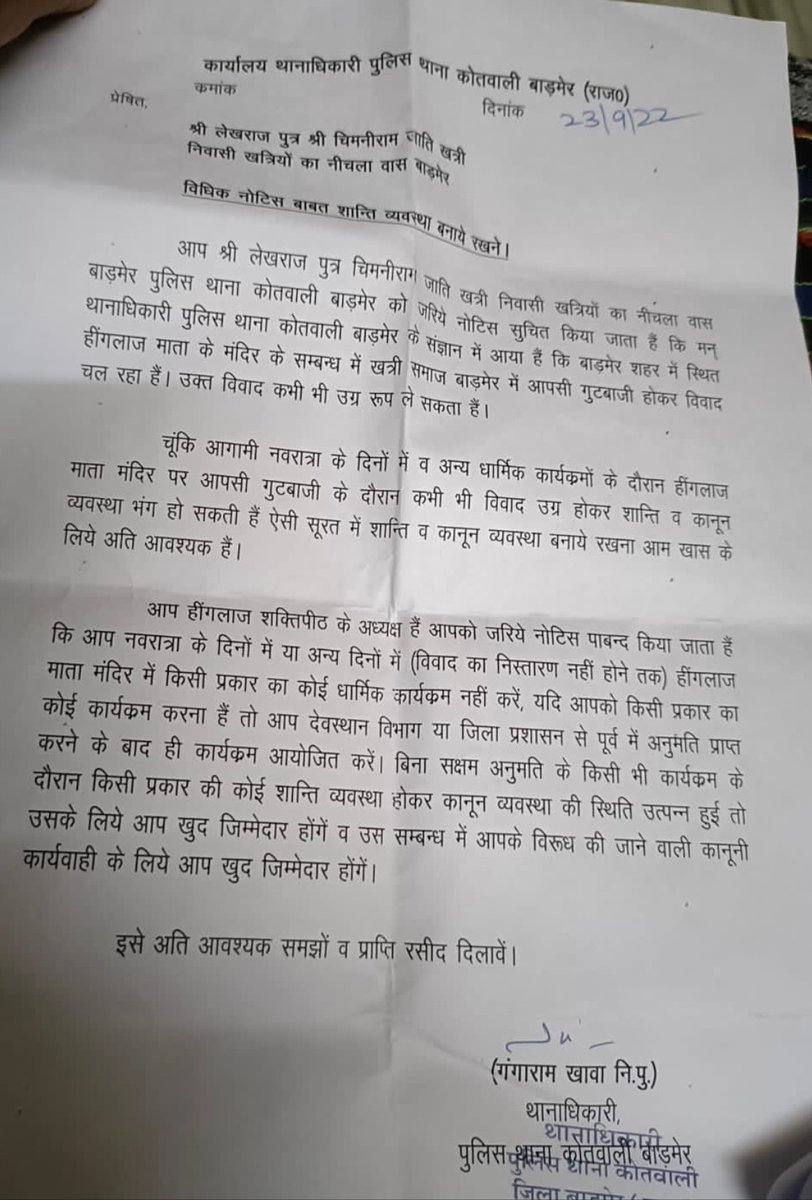 कार्यालय थानाधिकारी पुलिस थाना कोतवाली बाड़मेर (राज०)
कमांक
दिनांक 23/9/22
प्रेषित,
श्री लेखराज पुत्र श्री चिमनीराम जाति खत्री
निवासी खत्रियों का नीचला वास बाड़मेर
विधिक नोटिस बाबत शान्ति व्यवस्था बनाये रखने।
आप श्री लेखराज पुत्र चिमनीराम जाति खत्री निवासी खत्रियों का नीचला वास
बाड़मेर पुलिस थाना कोतवाली बाड़मेर को जरिये नोटिस सुचित किया जाता हैं कि मन्
थानाधिकारी पुलिस थाना कोतवाली बाड़मेर के संज्ञान में आया हैं कि बाड़मेर शहर में स्थित
हींगलाज माता के मंदिर के सम्बन्ध में खत्री समाज बाड़मेर में आपसी गुटबाजी होकर विवाद
चल रहा हैं। उक्त विवाद कभी भी उग्र रूप ले सकता हैं।
चूंकि आगामी नवरात्रा के दिनों में व अन्य धार्मिक कार्यकमों के दौरान हींगलाज
माता मंदिर पर आपसी गुटबाजी के दौरान कभी भी विवाद उग्र होकर शान्ति व कानून
व्यवस्था भंग हो सकती हैं ऐसी सूरत में शान्ति व कानून व्यवस्था बनाये रखना आम खास के
लिये अति आवश्यक हैं।
आप हींगलाज शक्तिपीठ के अध्यक्ष हैं आपको जरिये नोटिस पाबन्द किया जाता हैं
कि आप नवरात्रा के दिनों में या अन्य दिनों में (विवाद का निस्तारण नहीं होने तक) हींगलाज
माता मंदिर में किसी प्रकार का कोई धार्मिक कार्यकम नहीं करें, यदि आपको किसी प्रकार का
कोई कार्यकम करना हैं तो आप देवस्थान विभाग या जिला प्रशासन से पूर्व में अनुमति प्राप्त
करने के बाद ही कार्यकम आयोजित करें। बिना सक्षम अनुमति के किसी भी कार्यकम के
दौरान किसी प्रकार की कोई शान्ति व्यवस्था होकर कानून व्यवस्था की स्थिति उत्पन्न हुई तो
उसके लिये आप खुद जिम्मेदार होंगें व उस सम्बन्ध में आपके विरूध की जाने वाली कानूनी
कार्यवाही के लिये आप खुद जिम्मेदार होंगें।
इसे अति आवश्यक समझों व प्राप्ति रसीद दिलावें।
(गंगाराम खावा नि.पु.)
थानाधिकारी,
थानाधिकारी
पुलिस थाना कोतवाली बाड़मेर
पुलिस थाना कोतवाली
जिला बाड़मेर